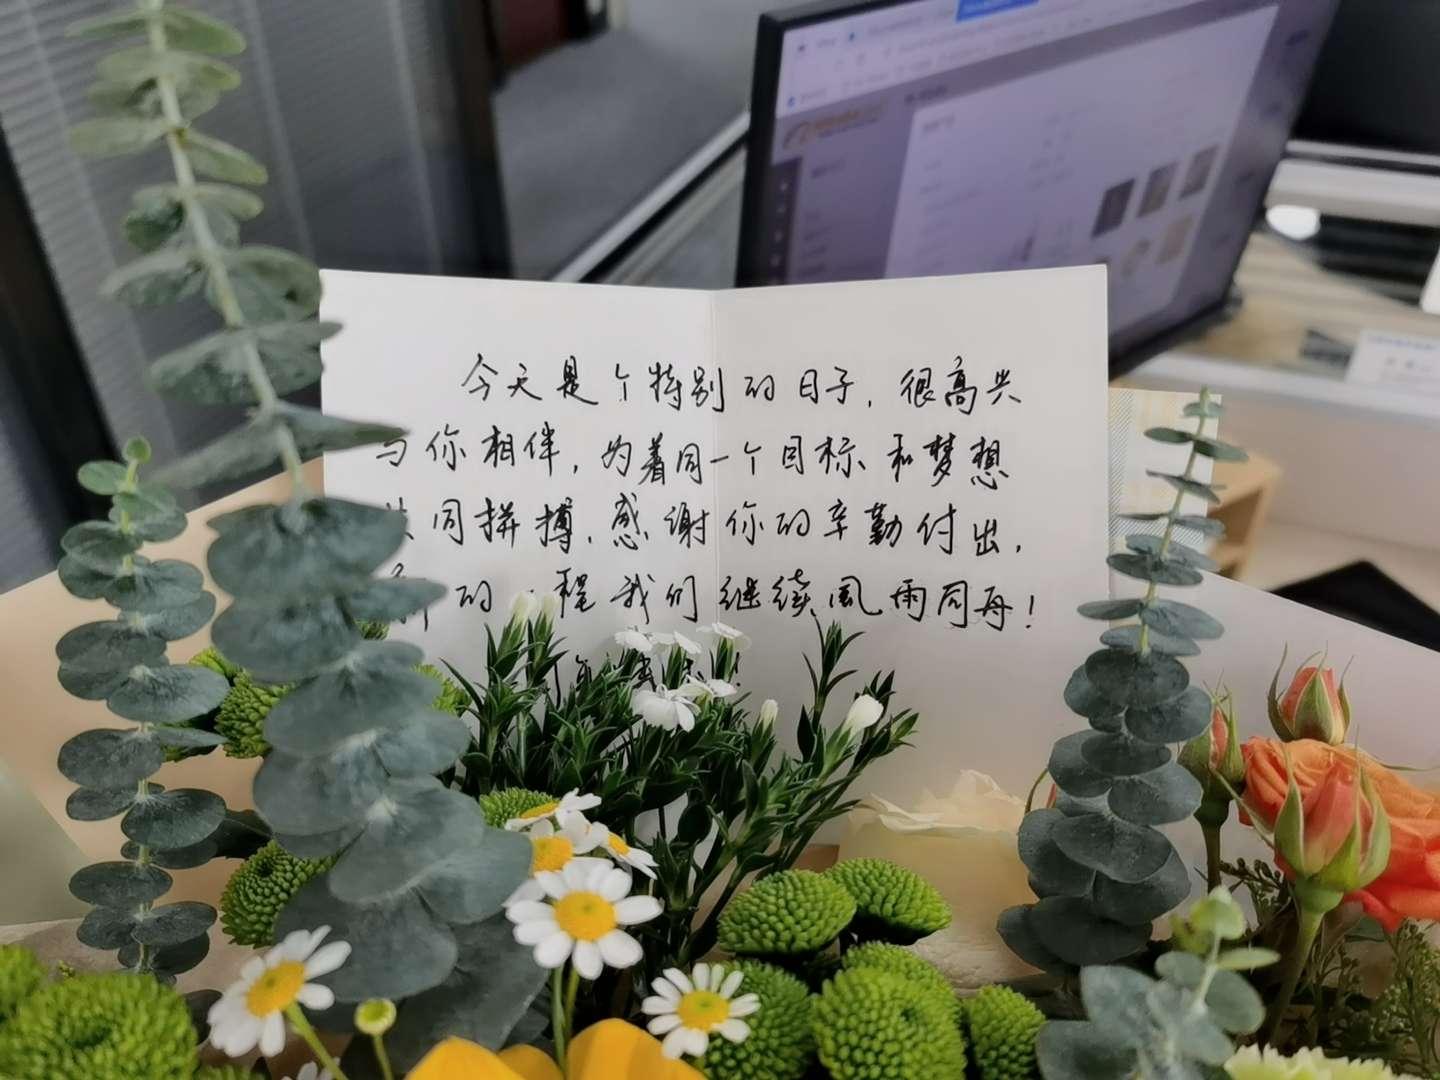 今天是个特别的日子,很高兴
与你相伴,为着同一个目标和梦想
共同拼搏.感谢你的辛勤付出,
的 程我们继续风雨同舟!